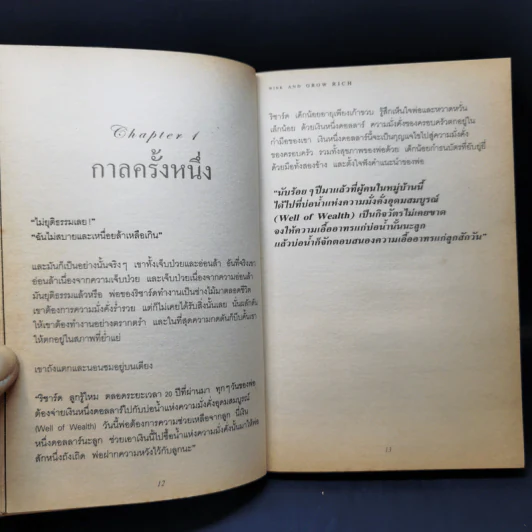 Chapter 1
กาลครั้งหนึ่ง
"ไม่ยุติธรรมเลย !"
"ฉันไม่สบายและเหนื่อยล้าเหลือเกิน"
และมันก็เป็นอย่างนั้นจริงๆ เขาทั้งเจ็บป่วยและอ่อนล้า อันที่จริงเขา
อ่อนล้าเนื่องจากความเจ็บป่วย และเจ็บป่วยเนื่องจากความอ่อนล้า
มันยุติธรรมแล้วหรือ พ่อของริชาร์ดทำงานเป็นช่างไม้มาตลอดชีวิต
เขาต้องการความมั่งคั่งร่ำรวย แต่ก็ไม่เคยได้รับสิ่งนั้นเลย นั่นผลักดัน
ให้เขาต้องทำงานอย่างตรากตรำ และในที่สุดความกดดันก็บีบคั้นเขา
ให้ตกอยู่ในสภาพที่ย่ำแย่
เขาถังแตกและนอนซมอยู่บนเตียง
"ริชาร์ด ลูกรู้ไหม ตลอดระยะเวลา 20 ปีที่ผ่านมา ทุกๆ วันของพ่อ
ต้องจ่ายเงินหนึ่งดอลลาร์ไปกับบ่อน้ำแห่งความมั่งคั่งอุดมสมบูรณ์
(Well of Wealth) วันนี้พ่อต้องการความช่วยเหลือจากลูก นี่เงิน
หนึ่งดอลลาร์นะลูก ช่วยเอาเงินนี้ไปซื้อน้ำแห่งความมั่งคั่งนั้นมาให้พ่อ
สักหนึ่งถังเถิด พ่อฝากความหวังไว้กับลูกนะ"
12
WISH AND GROW RICH
ริชาร์ด เด็กน้อยอายุเพียงเก้าขวบ รู้สึกเห็นใจพ่อและหวาดหวั่น
เด็กน้อย ด้วยเงินหนึ่งดอลลาร์ ความมั่งคั่งของครอบครัวตกอยู่ใน
กำมือของเขา เงินหนึ่งดอลลาร์นี้จะเป็นกุญแจไขไปสู่ความมั่งคั่ง
ของครอบครัว รวมทั้งสุขภาพของพ่อด้วย เด็กน้อยกำธนบัตรที่ยับยู่ยี่
ด้วยมือทั้งสองข้าง และตั้งใจฟังคำแนะนำของพ่อ
"นับร้อยๆ ปีมาแล้วที่ผู้คนในหมู่บ้านนี้
ได้ไปที่บ่อน้ำแห่งความมั่งคั่งอุดมสมบูรณ์
(Well of Wealth) เป็นกิจวัตรไม่เคยขาด
จงให้ความเอื้ออาทรแก่บ่อน้ำนั้นนะลูก
แล้วบ่อน้ำก็จักตอบสนองความเอื้ออาทรแก่ลูกสักวัน"
13